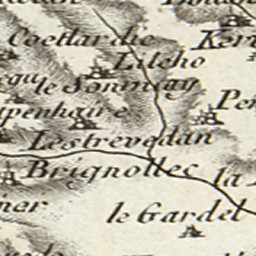 Coetlar die
Ker
Lileho
le Sonmuay
Pe
penhaire
Lestrevedan
Brignollec
la
ner
le Gardel